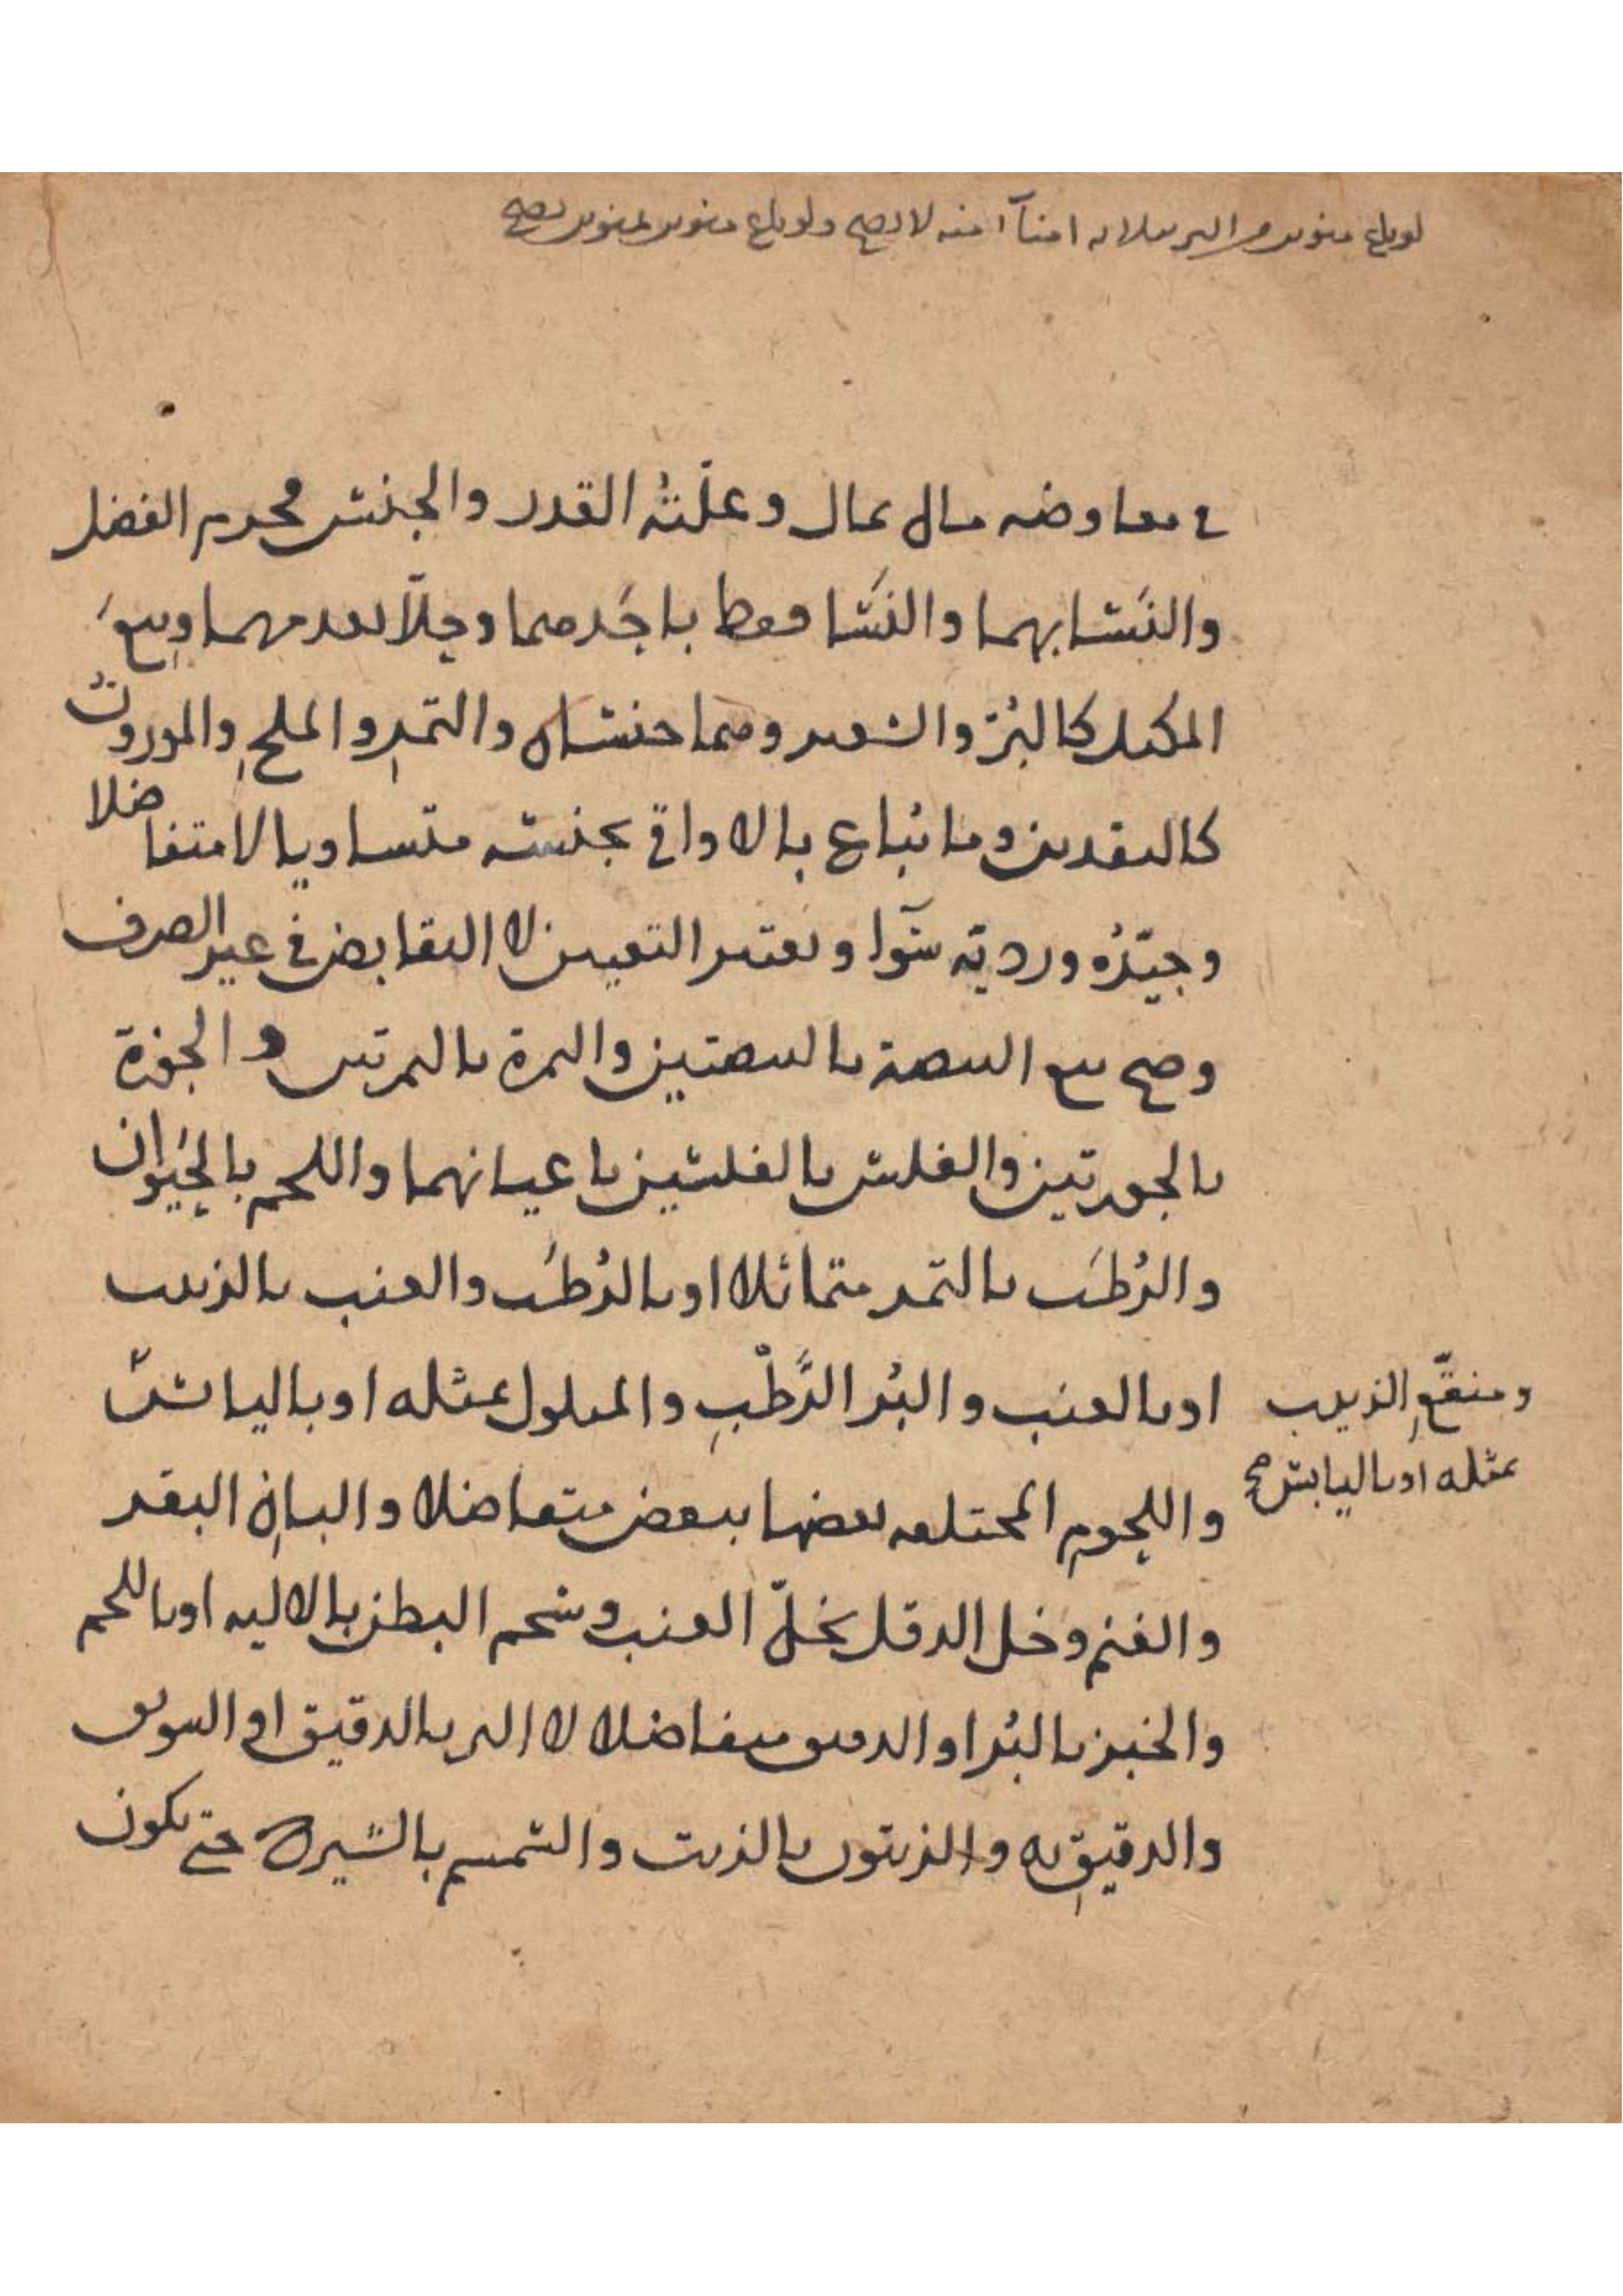 لو باع منوين من البر بثلاثة امناآ منه لا يصح ولو باع منوين بمنوين يصح
في معاوضه مال بمال وعلّتهُ القدر والجنس فحرم الفضل
والنَسَا بهما والنَسَا فقط باحَدهما وحِلّا بعدمهما وبيعَ
المكيل كالبُرّ والشعير وهما جنسان والتمرِ والملحِ والموزونُ
كالنقدين وما يُباع بالاواقي بجنسه متساويا لا متفاضلا
وجيّدُه ورديّه سَوآ ويعتبر التعيين لا التقابض في غير الصرف
وصح بيع البيضة بالبيضتين والتمرة بالتمرتين والجوزة
بالجوزتين والفلس بالفلسين باعيانهما واللحم بالحيَوان
والرُطَب بالتمر متماثلا او بالرُطَب والعنب بالزبيب
او بالعنب والبُر الرَّطْبِ والمبلول بمثله او باليابس
ومنقّعِ الزبيب
بمثله او باليابس صح
واللحومِ المختلفه بعضها ببعض متفاضلا والبانِ البقر
والغنم وخل الدقل بخلّ العنب وشحم البطن بالاليه او باللحم
والخبز بالبُر او الدقيق متفاضلا لا البر بالدقيق او السويق
والدقيقِ به والزيتون بالزيت والسمسم بالشيرج حتى يكون